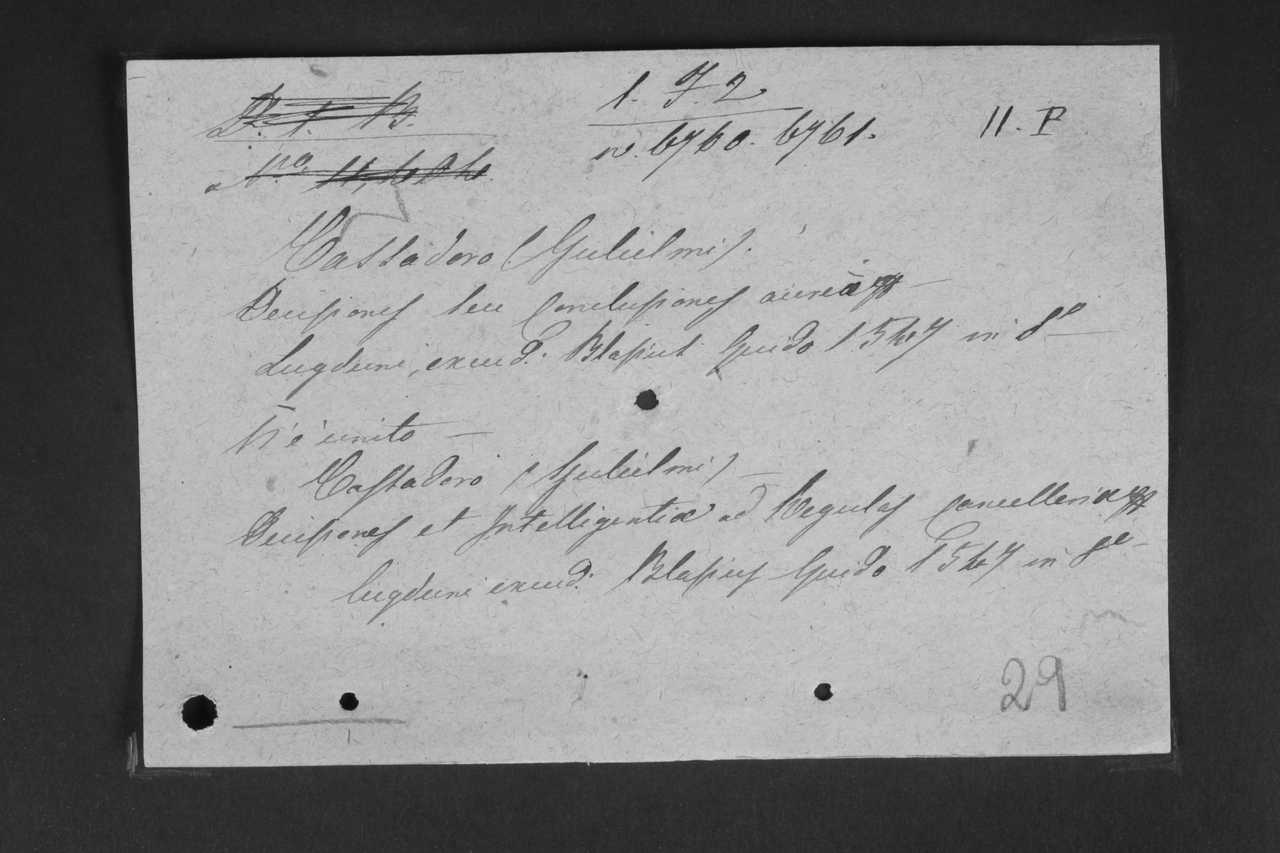 1. F. 2
n. 6760. 6761.
11. P
Cassadoro (Gulielmi).
Decisiones seu Conclusiones aureæ
Lugduni, excud. Blasius Guido 1547 in 8º
Vi è unito —
Cassadoro (Gulielmi) —
Decisiones et Intelligentiæ ad Regulas Cancellariæ
Lugduni excud. Blasius Guido 1547 in 8º
29